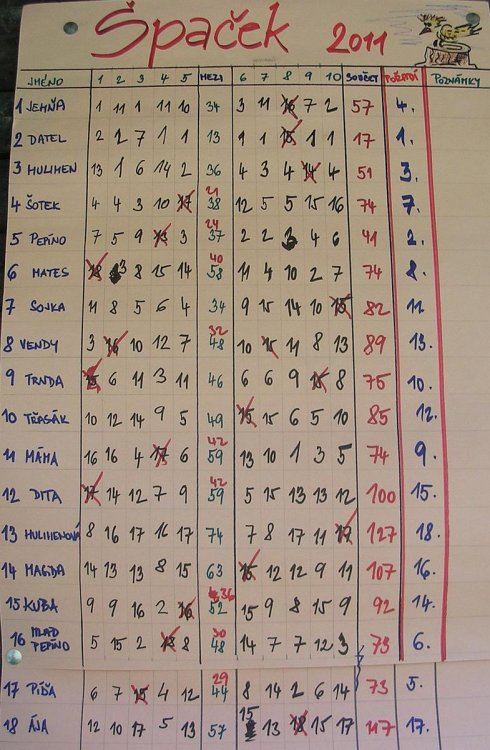 Špaček 2011
JMÉNO 1 2 3 4 5 MEZI 6 7 8 9 10 SOUČET POŘADÍ POZNÁMKY
1 JEHŇA 1 11 1 11 10 34 3 11 16 7 2 57 4.
2 DATEL 2 2 7 1 1 13 9 1 15 1 1 17 1.
3 HULIHEN 13 1 6 14 2 36 4 3 4 14 4 51 3.
4 ŠOTEK 4 4 3 10 17 21 38 12 5 5 15 16 74 7.
5 PEPÍNO 7 5 9 13 3 24 37 2 2 3 4 6 41 2.
6 MATES 18 3 8 15 14 40 58 11 4 10 2 7 74 8.
7 SOJKA 11 8 5 6 4 34 9 15 14 10 15 82 11.
8 VENDY 3 16 10 12 7 32 48 10 15 11 8 13 89 13.
9 TRNDA 15 6 11 3 11 46 6 6 9 15 8 75 10.
10 TŘASÁK 10 12 14 9 5 49 15 15 6 5 10 85 12.
11 MÁMA 16 16 4 17 5 42 59 13 10 1 3 5 74 9.
12 DITA 17 14 12 7 9 42 59 5 15 13 13 12 100 15.
13 HULIHENOVÁ 8 16 17 16 17 74 7 8 17 11 17 127 18.
14 MAGIDA 14 13 13 8 15 63 15 12 12 9 11 107 16.
15 KUBA 9 9 16 2 16 36 52 15 9 8 15 9 92 14.
16 MLAD PEPÍNO 5 15 2 18 8 30 48 14 7 7 12 3 73 6.
17 PÍĎA 6 7 15 4 12 29 44 8 14 2 6 14 73 5.
18 ÁJA 12 10 17 5 13 57 15 13 18 15 17 117 17.